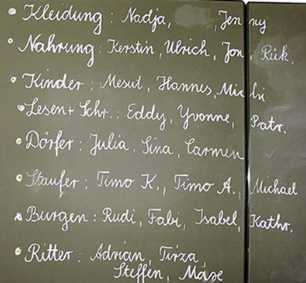 Kleidung: Nadja, Jenny
Nahrung: Kerstin, Ulrich, Jon, Rick.
Kinder: Mesut, Hannes, Michi
Lesen + Schr.: Eddy, Yvonne, Patr.
Dörfer: Julia, Sina, Carmen
Staufer: Timo K., Timo A., Michael
Burgen: Rudi, Fabi, Isabel, Kathr.
Ritter: Adrian, Tirza,
Steffen,